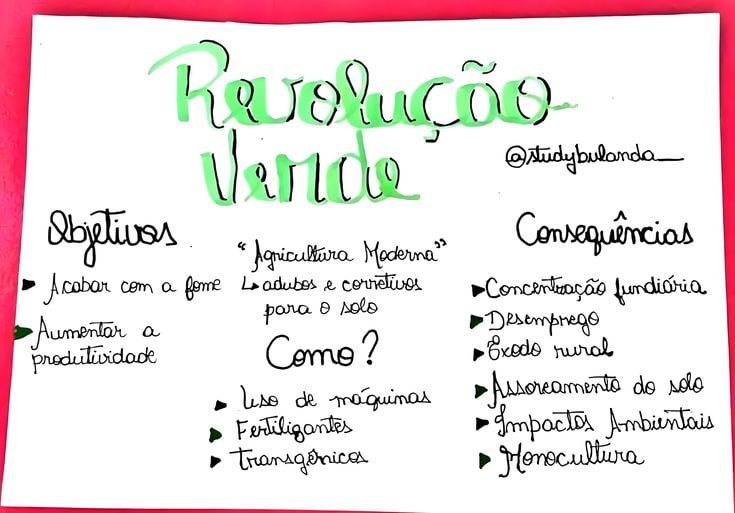 Revolução
Verde
@studybulanda_
Objetivos
▸ Acabar com a fome
▸ Aumentar a
produtividade
"Agricultura Moderna"
↳ adubos e corretivos
para o solo
Como?
▸ Uso de máquinas
▸ Fertilizantes
▸ Transgênicos
Consequências
▸ Concentração fundiária
▸ Desemprego
▸ Êxodo rural
▸ Assoreamento do solo
▸ Impactos Ambientais
▸ Monocultura